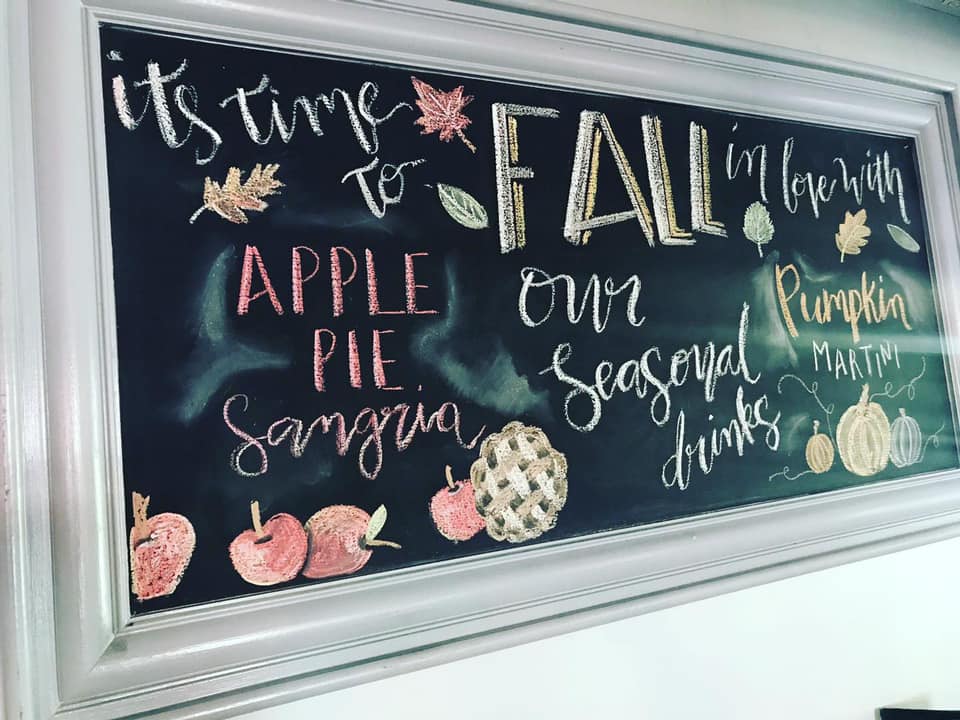 its time to FALL in love with
our seasonal drinks
APPLE
PIE.
Sangria
Pumpkin
MARTINI